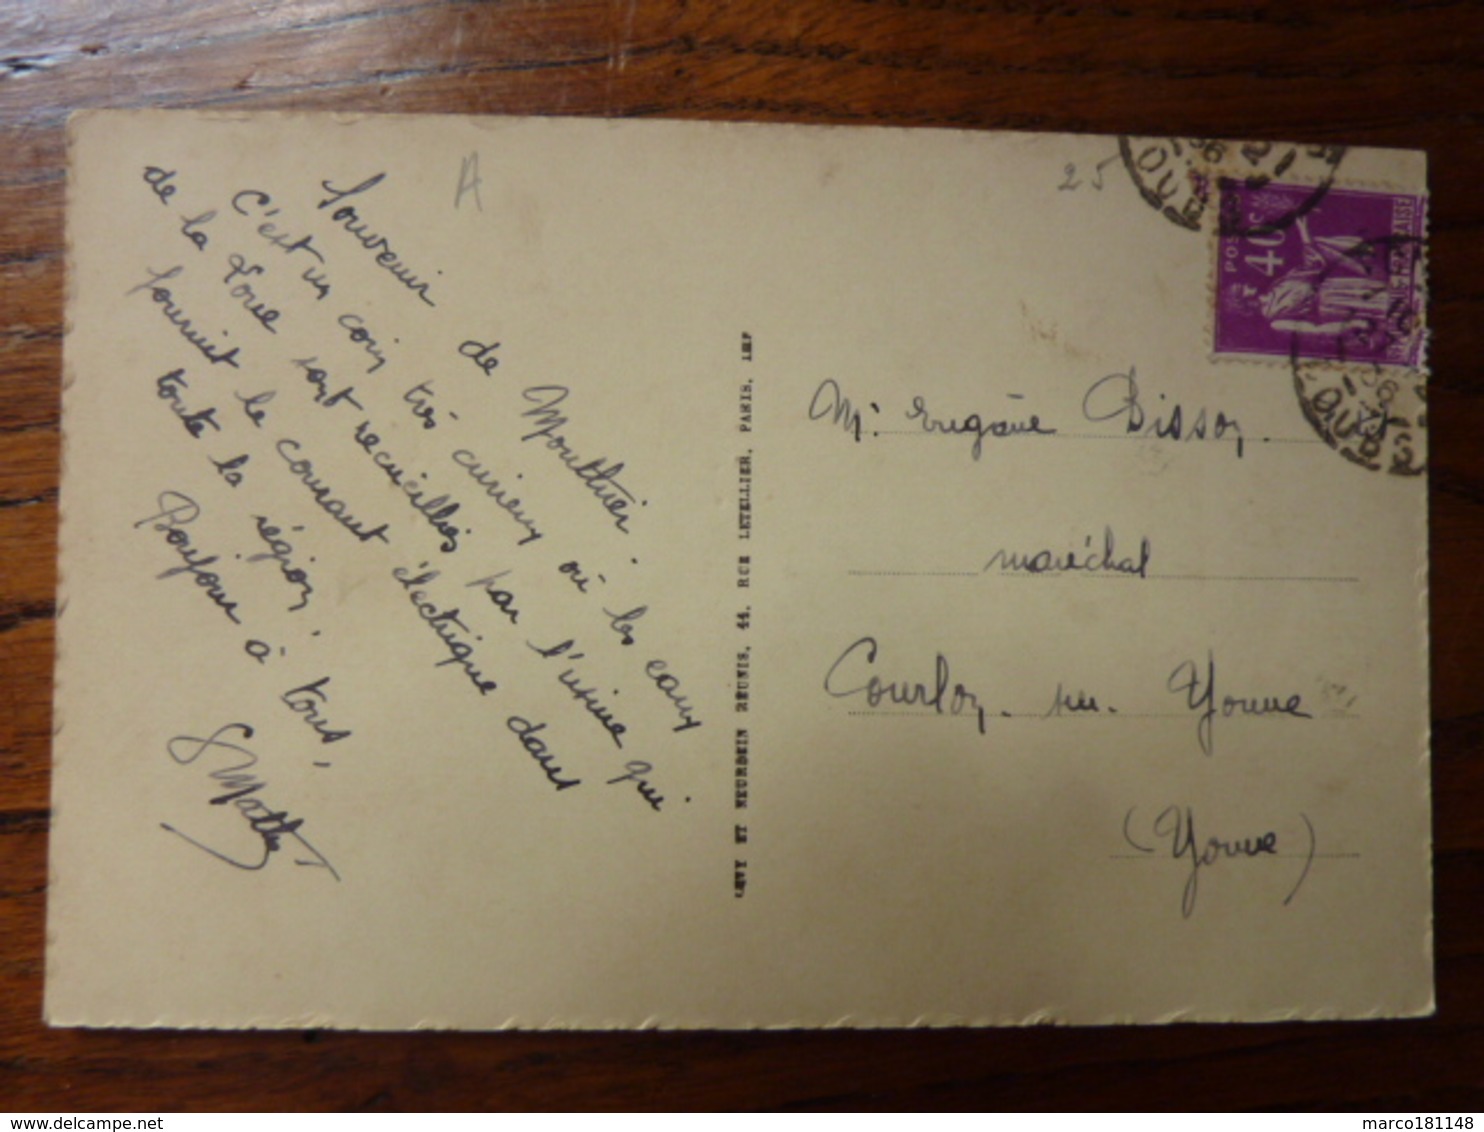 A
25
Souvenir de Mouthier.
C'est un coin très curieux où les eaux
de la Loue sont recueillies par l'usine qui
fournit le courant électrique dans
toute la région.
Bonjour à tous,
G Mathe
LEVY ET NEURDEIN RÉUNIS, 44, RUE LETELLIER, PARIS. IMP
POSTES
40c
FRANÇAISE
DOUBS
DOUBS
Mr Eugène Bisson
maréchal
Courlon sur Yonne
(Yonne)
marco181148